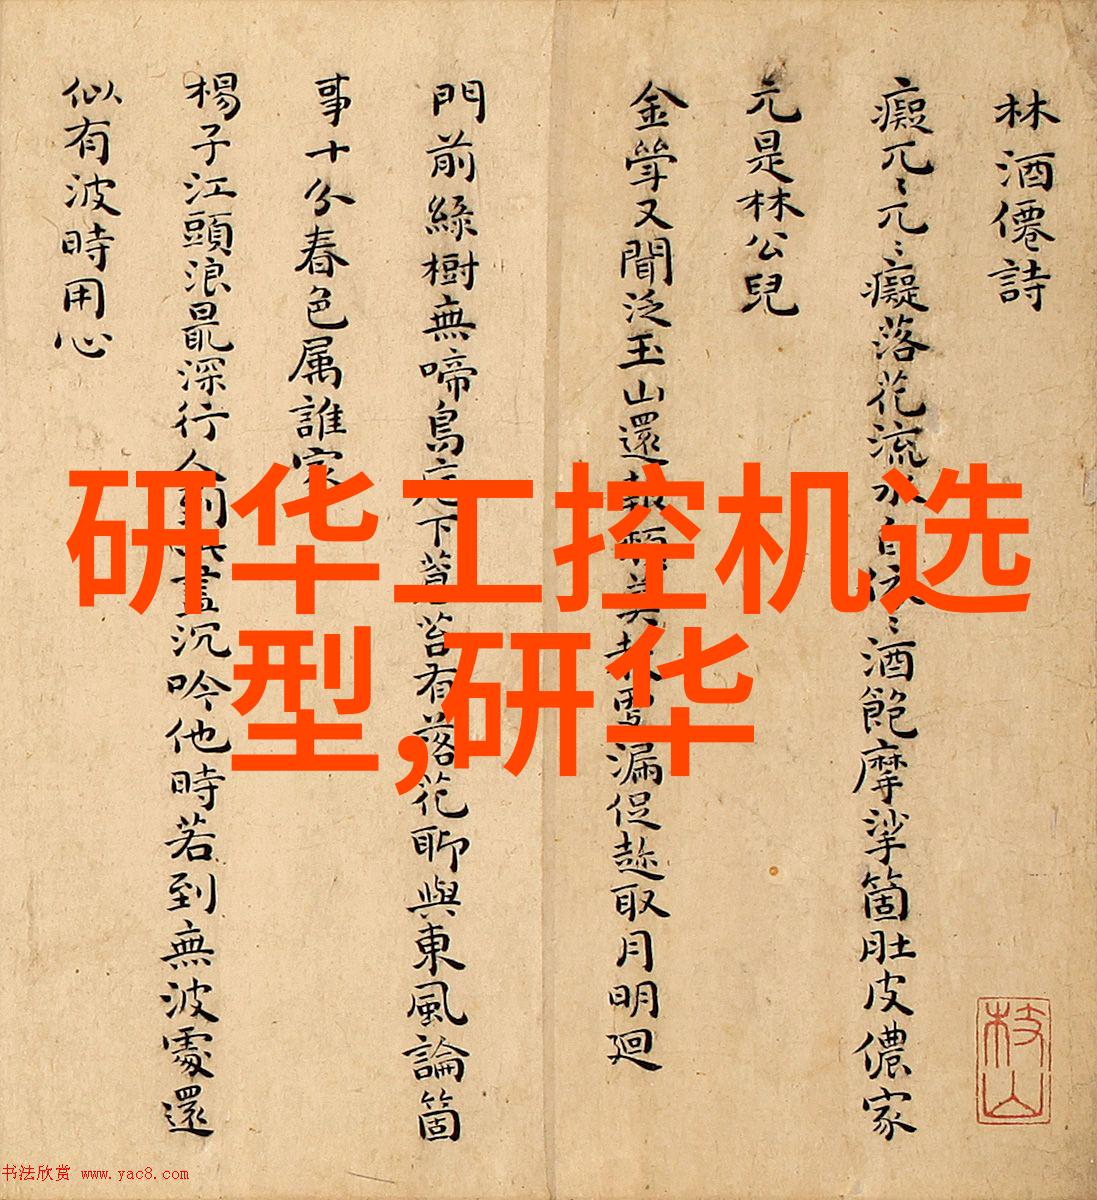 林酒僊詩
癡兀〻兀〻癡落花流水自依〻酒飽摩挲箇肚皮儂家
元是林公兒
金斝又聞泛玉山還報頽美
漏促趂取月明廻
門前綠樹無啼鳥庭下蒼苔有落花聊與東風論箇
事十分春色属誰家
楊子江頭浪最深行人到
盡沉吟他時若到無波處還
似有波時用心
枝山
研华工控机选
型,研华
书法欣赏 www.yac8.com